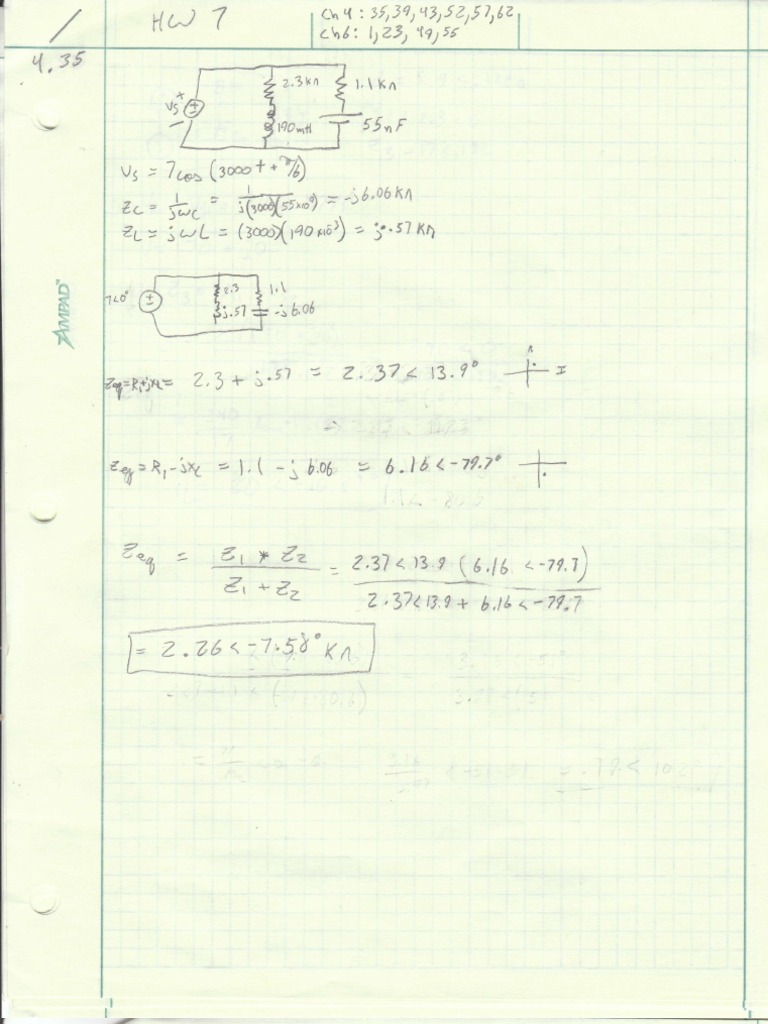 HW 7
Ch 4 : 35,39,43,52,57,62
Ch6 : 1,23, 49,55
4.35
2.3kΩ
1.1kΩ
Vs
+
-
190mH
55nF
Vs = 7cos(3000t + π/6)
Zc = 1/jωC = 1/j(3000)(55×10⁹) = -j6.06 kΩ
ZL = jωL = (3000)(190×10⁻³) = j.57 kΩ
7∠0°
2.3
1.1
j.57
-j6.06
AMPAD
Zeq = R1+jXL = 2.3 + j.57 = 2.37 < 13.9°
I
Zeq = R1 - jXc = 1.1 - j 6.06 = 6.16 < -79.7°
Zeq = Z1 * Z2 / Z1 + Z2 = 2.37 < 13.9 (6.16 < -79.7) / 2.37<13.9 + 6.16 < -79.7
= 2.26 < -7.58° kΩ